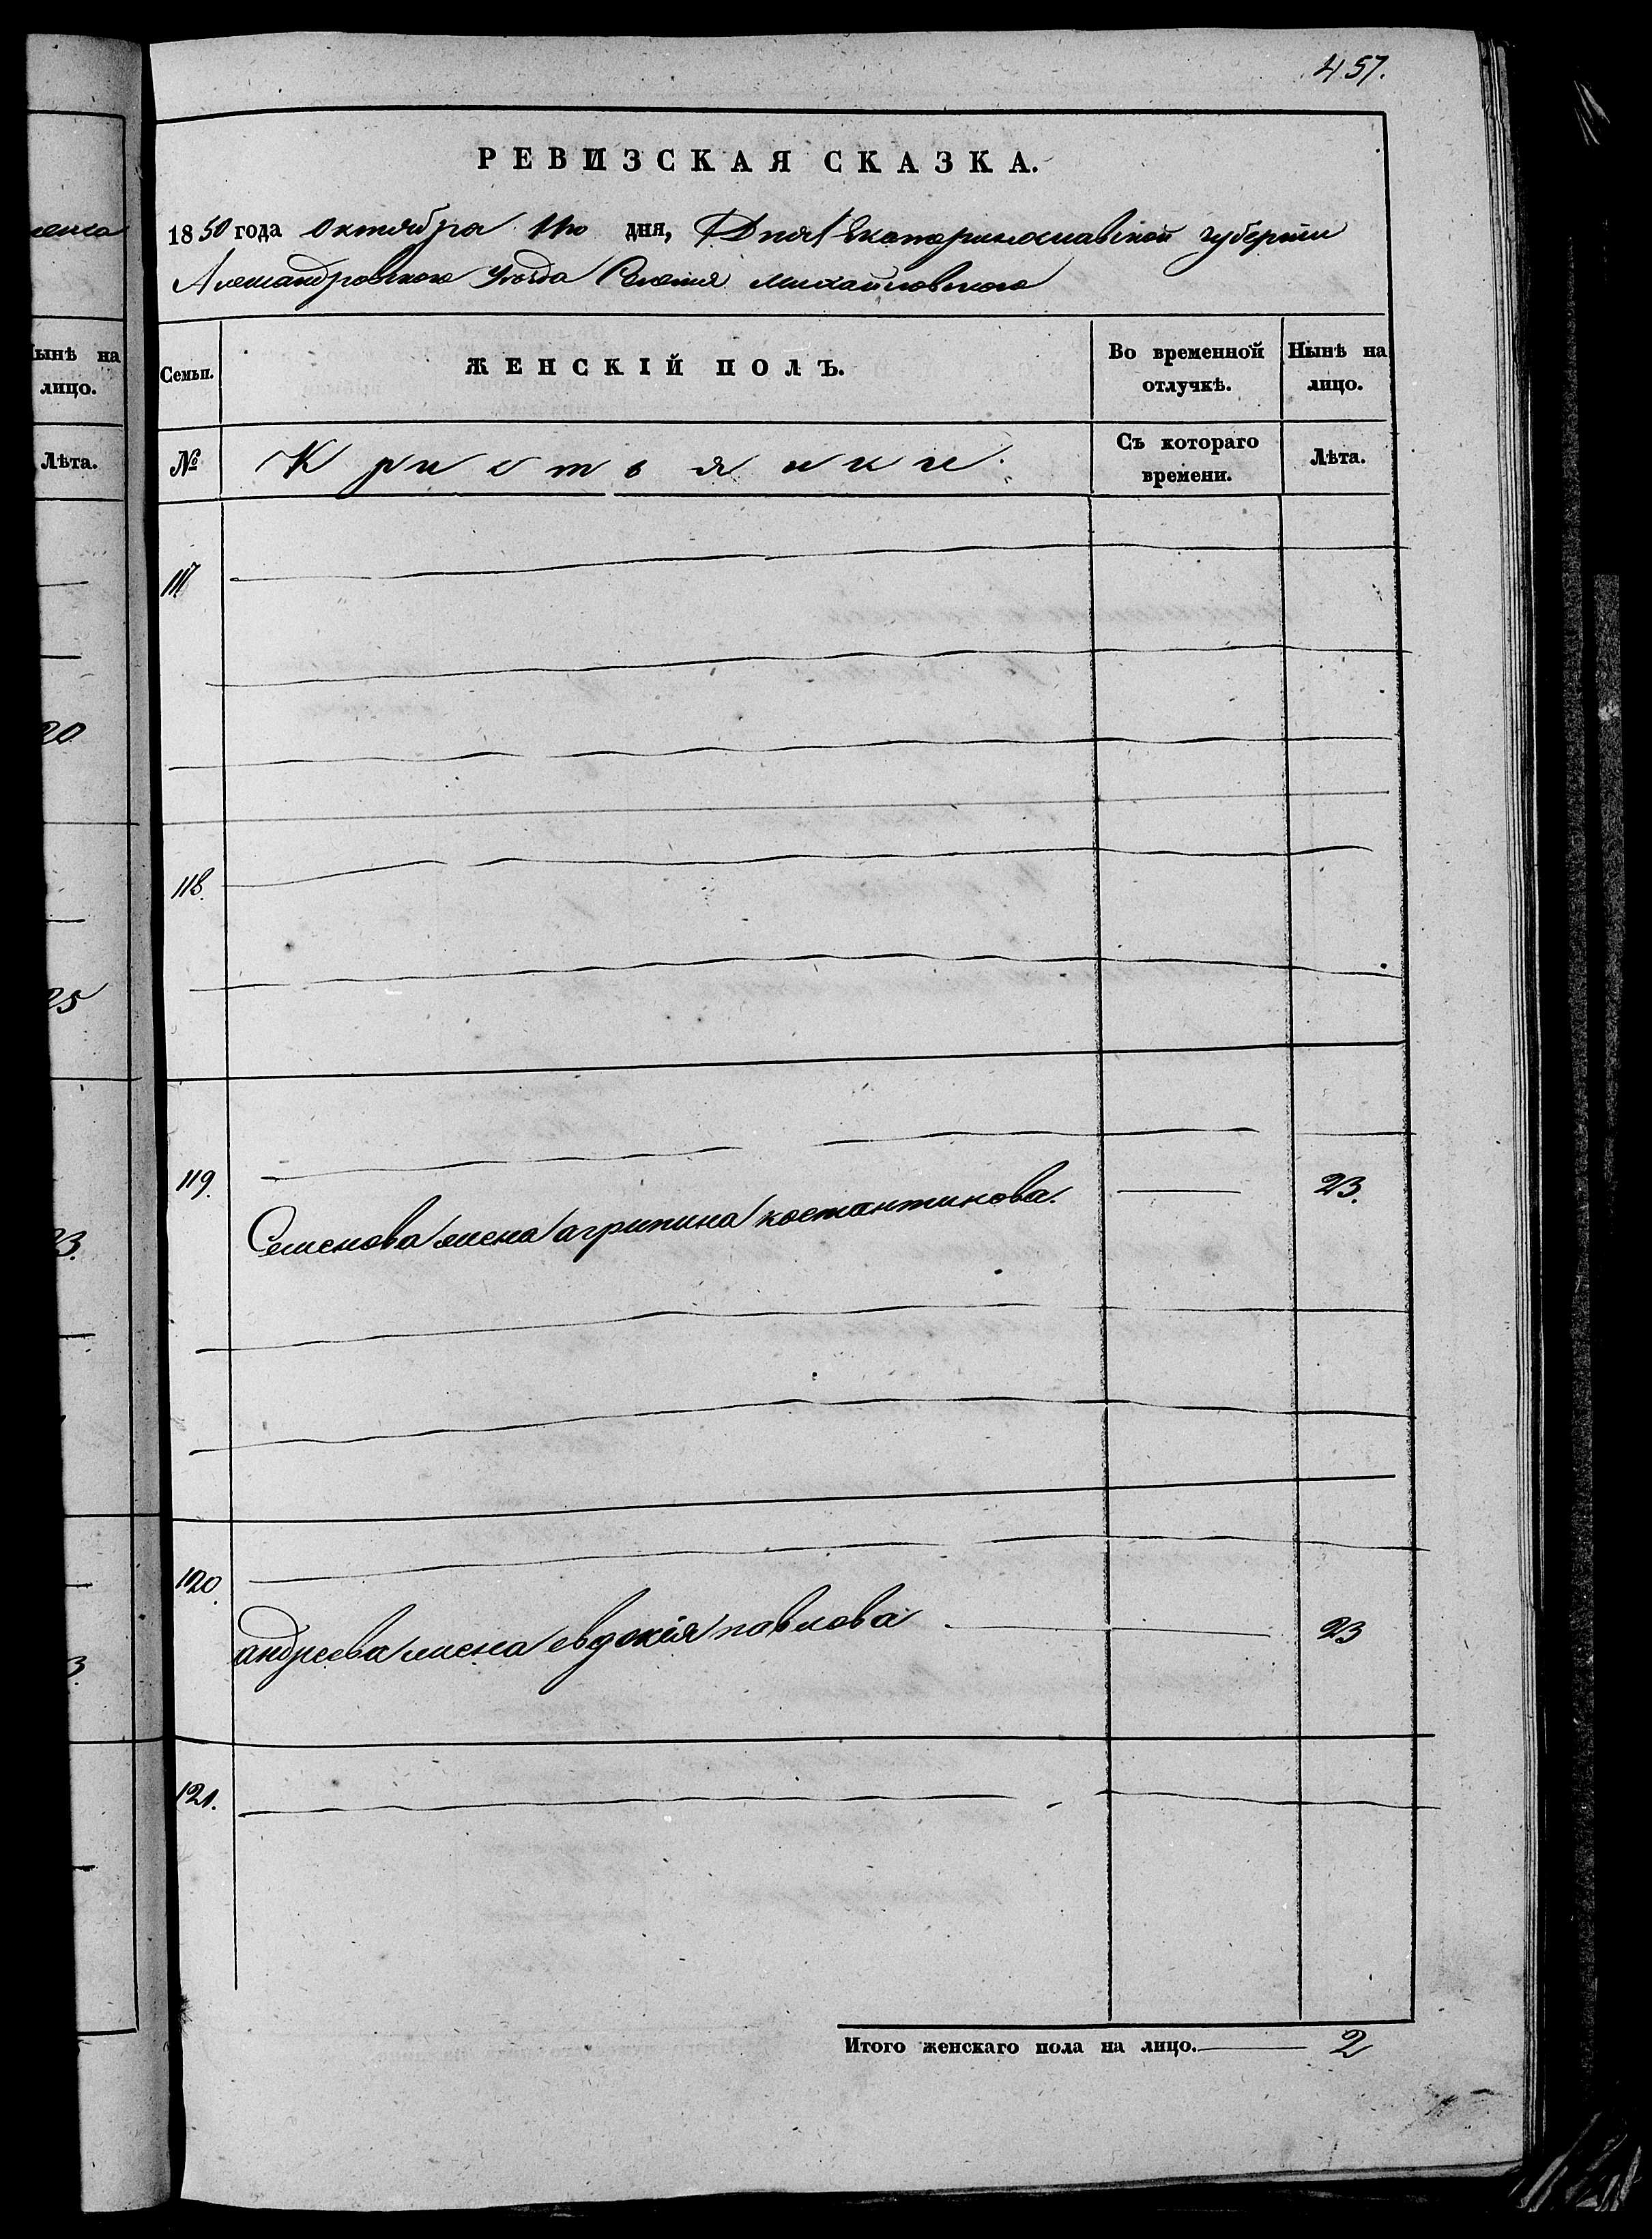 457.
РЕВИЗСКАЯ СКАЗКА.
1850 года Октября 11го дня, Дня Екатеринославской губернии
Александровского Уезда Селения Михайловского
ынѣ на
лицо.
Лѣта.
20
25
23.
Семьи.
ЖЕНСКІЙ ПОЛЪ.
Во временной
отлучкѣ.
Нынѣ на
лицо.
№
Кристьянки.
Съ котораго
времени.
Лѣта.
117
118.
119.
Семенова жена агрипина костантинова. 23.
120.
андреева жена евдокія павлова 23
121.
Итого женскаго пола на лицо. 2